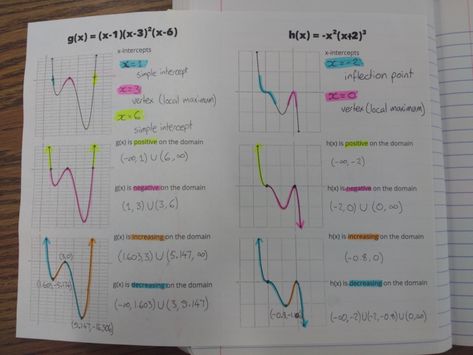 g(x) = (x-1)(x-3)²(x-6)
x-intercepts
x=1
simple intercept
x=3
vertex (local maximum)
x=6
simple intercept
g(x) is positive on the domain
(-∞, 1) ∪ (6, ∞)
g(x) is negative on the domain
(1, 3) ∪ (3, 6)
(3,0)
g(x) is increasing on the domain
(1.603, 3) ∪ (5.147, ∞)
g(x) is decreasing on the domain
(-∞, 1.603) ∪ (3, 5.147)
h(x) = -x²(x+2)³
x-intercepts
x=-2
inflection point
x=0
vertex (local maximum)
h(x) is positive on the domain
(-∞, -2)
h(x) is negative on the domain
(-2, 0) ∪ (0, ∞)
h(x) is increasing on the domain
(-0.8, 0)
h(x) is decreasing on the domain
(-∞, -2) ∪ (-2, -0.8) ∪ (0, ∞)